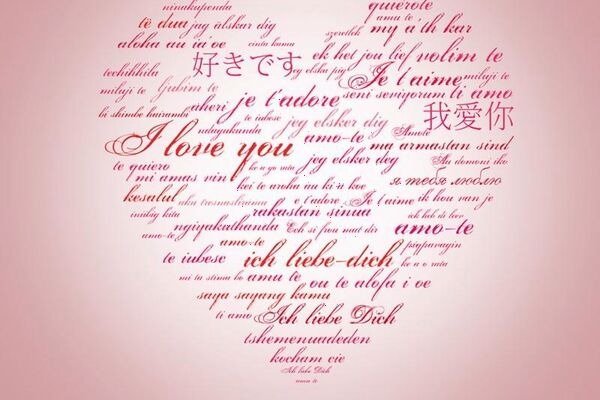 ninakupenda quierote
të dua jag älskar dig amu te my a'th kar
aloha au ia'oe cinta kamu szeretlek ek het jou lief volim te
techihhila 好きです jeg elsku pig Je t'aime miluji te
miluji te ljubim te seni seviyorum ti amo
bi shimbe hairambi aheri je t'adore 我愛你
ndagukunda te iubesc jeg elsker dig Amote
I love you amo-te ma armastan sind
te quiero ke a go rata jeg elsker deg Au domoni iko
mi amas vin kei te aroha au ki a koe я тебя люблю
kesalul aku tresnasliramu t'adore Je t'aime ik hou van je
inibig kita rakastan sinua ich hab di leev
ngiyakuthanda Ech si frou mat dir amo-te
amo-te amo-te pigparavagin
te iubesc ich liebe-dich ke a o rata
mi ta stima bo amu te ou te alofa i oe
saya sayang kamu
ti amo Ich liebe Dich
tshemenuadeden
kocham cie
Ich liebe Dich
amu te